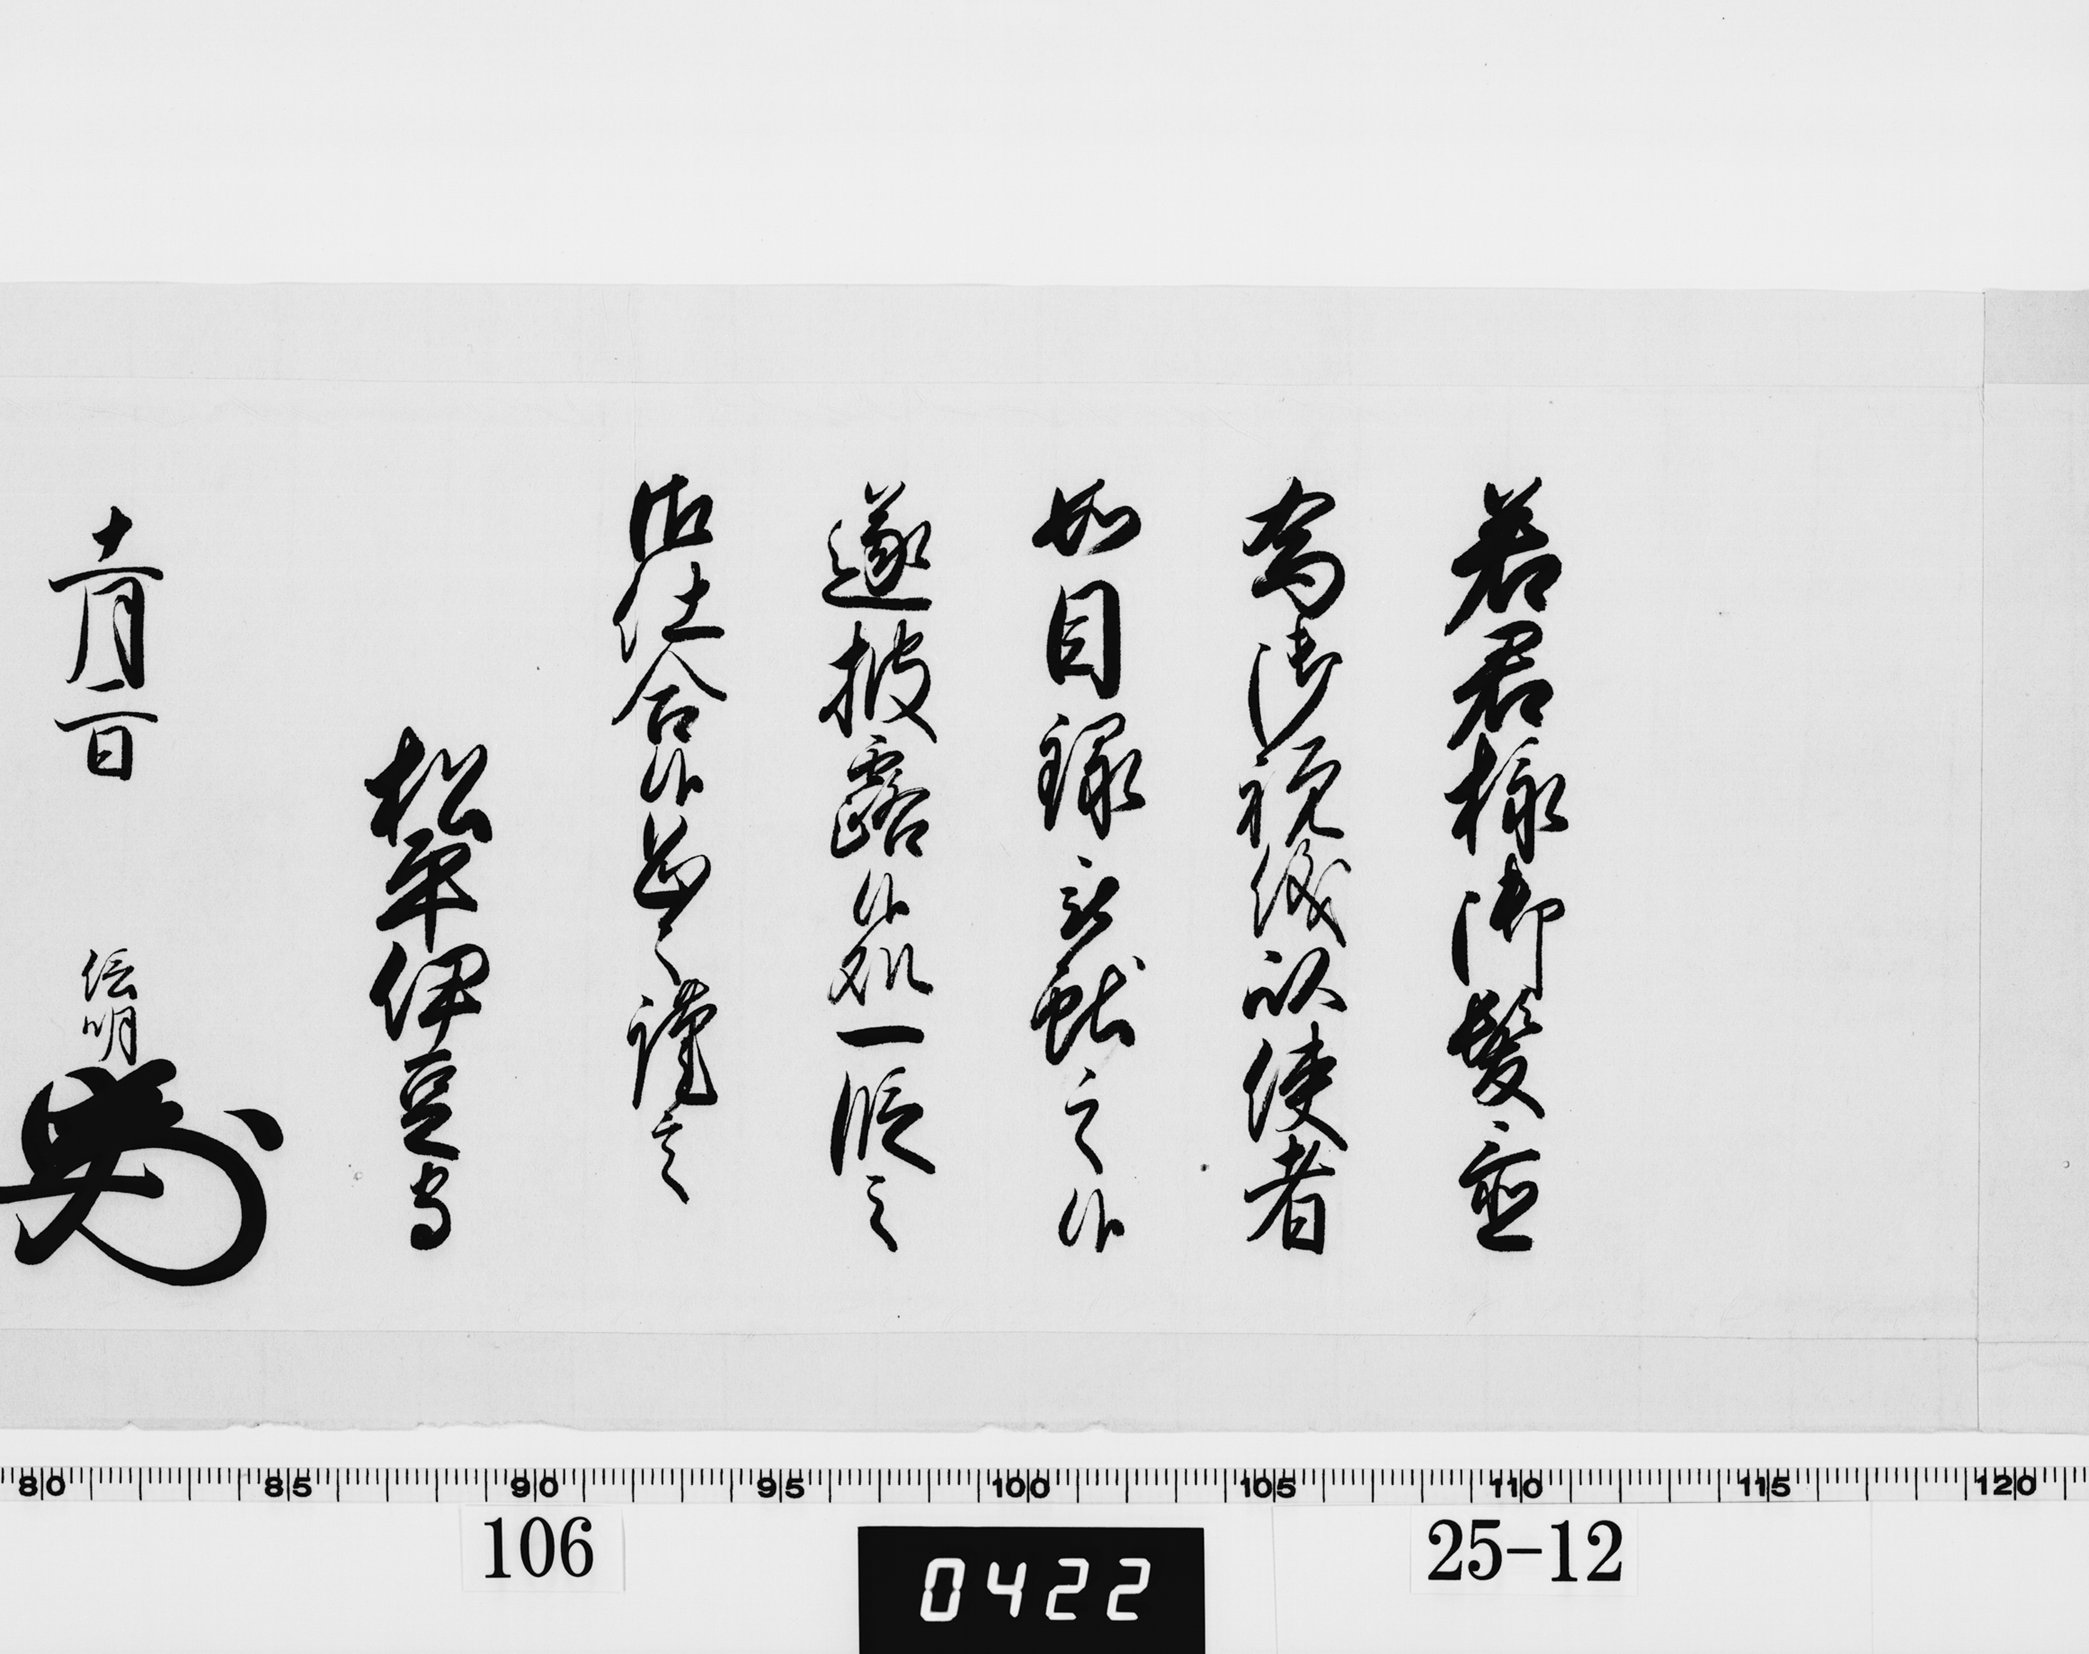 若君様御髪置
為御祝儀以使者
如目録被献之候
遂披露候処一段之
御仕合候恐々謹言
松平伊豆守
十一月二日 信明
80 85 90 95 100 105 110 115 120
106 0422 25-12